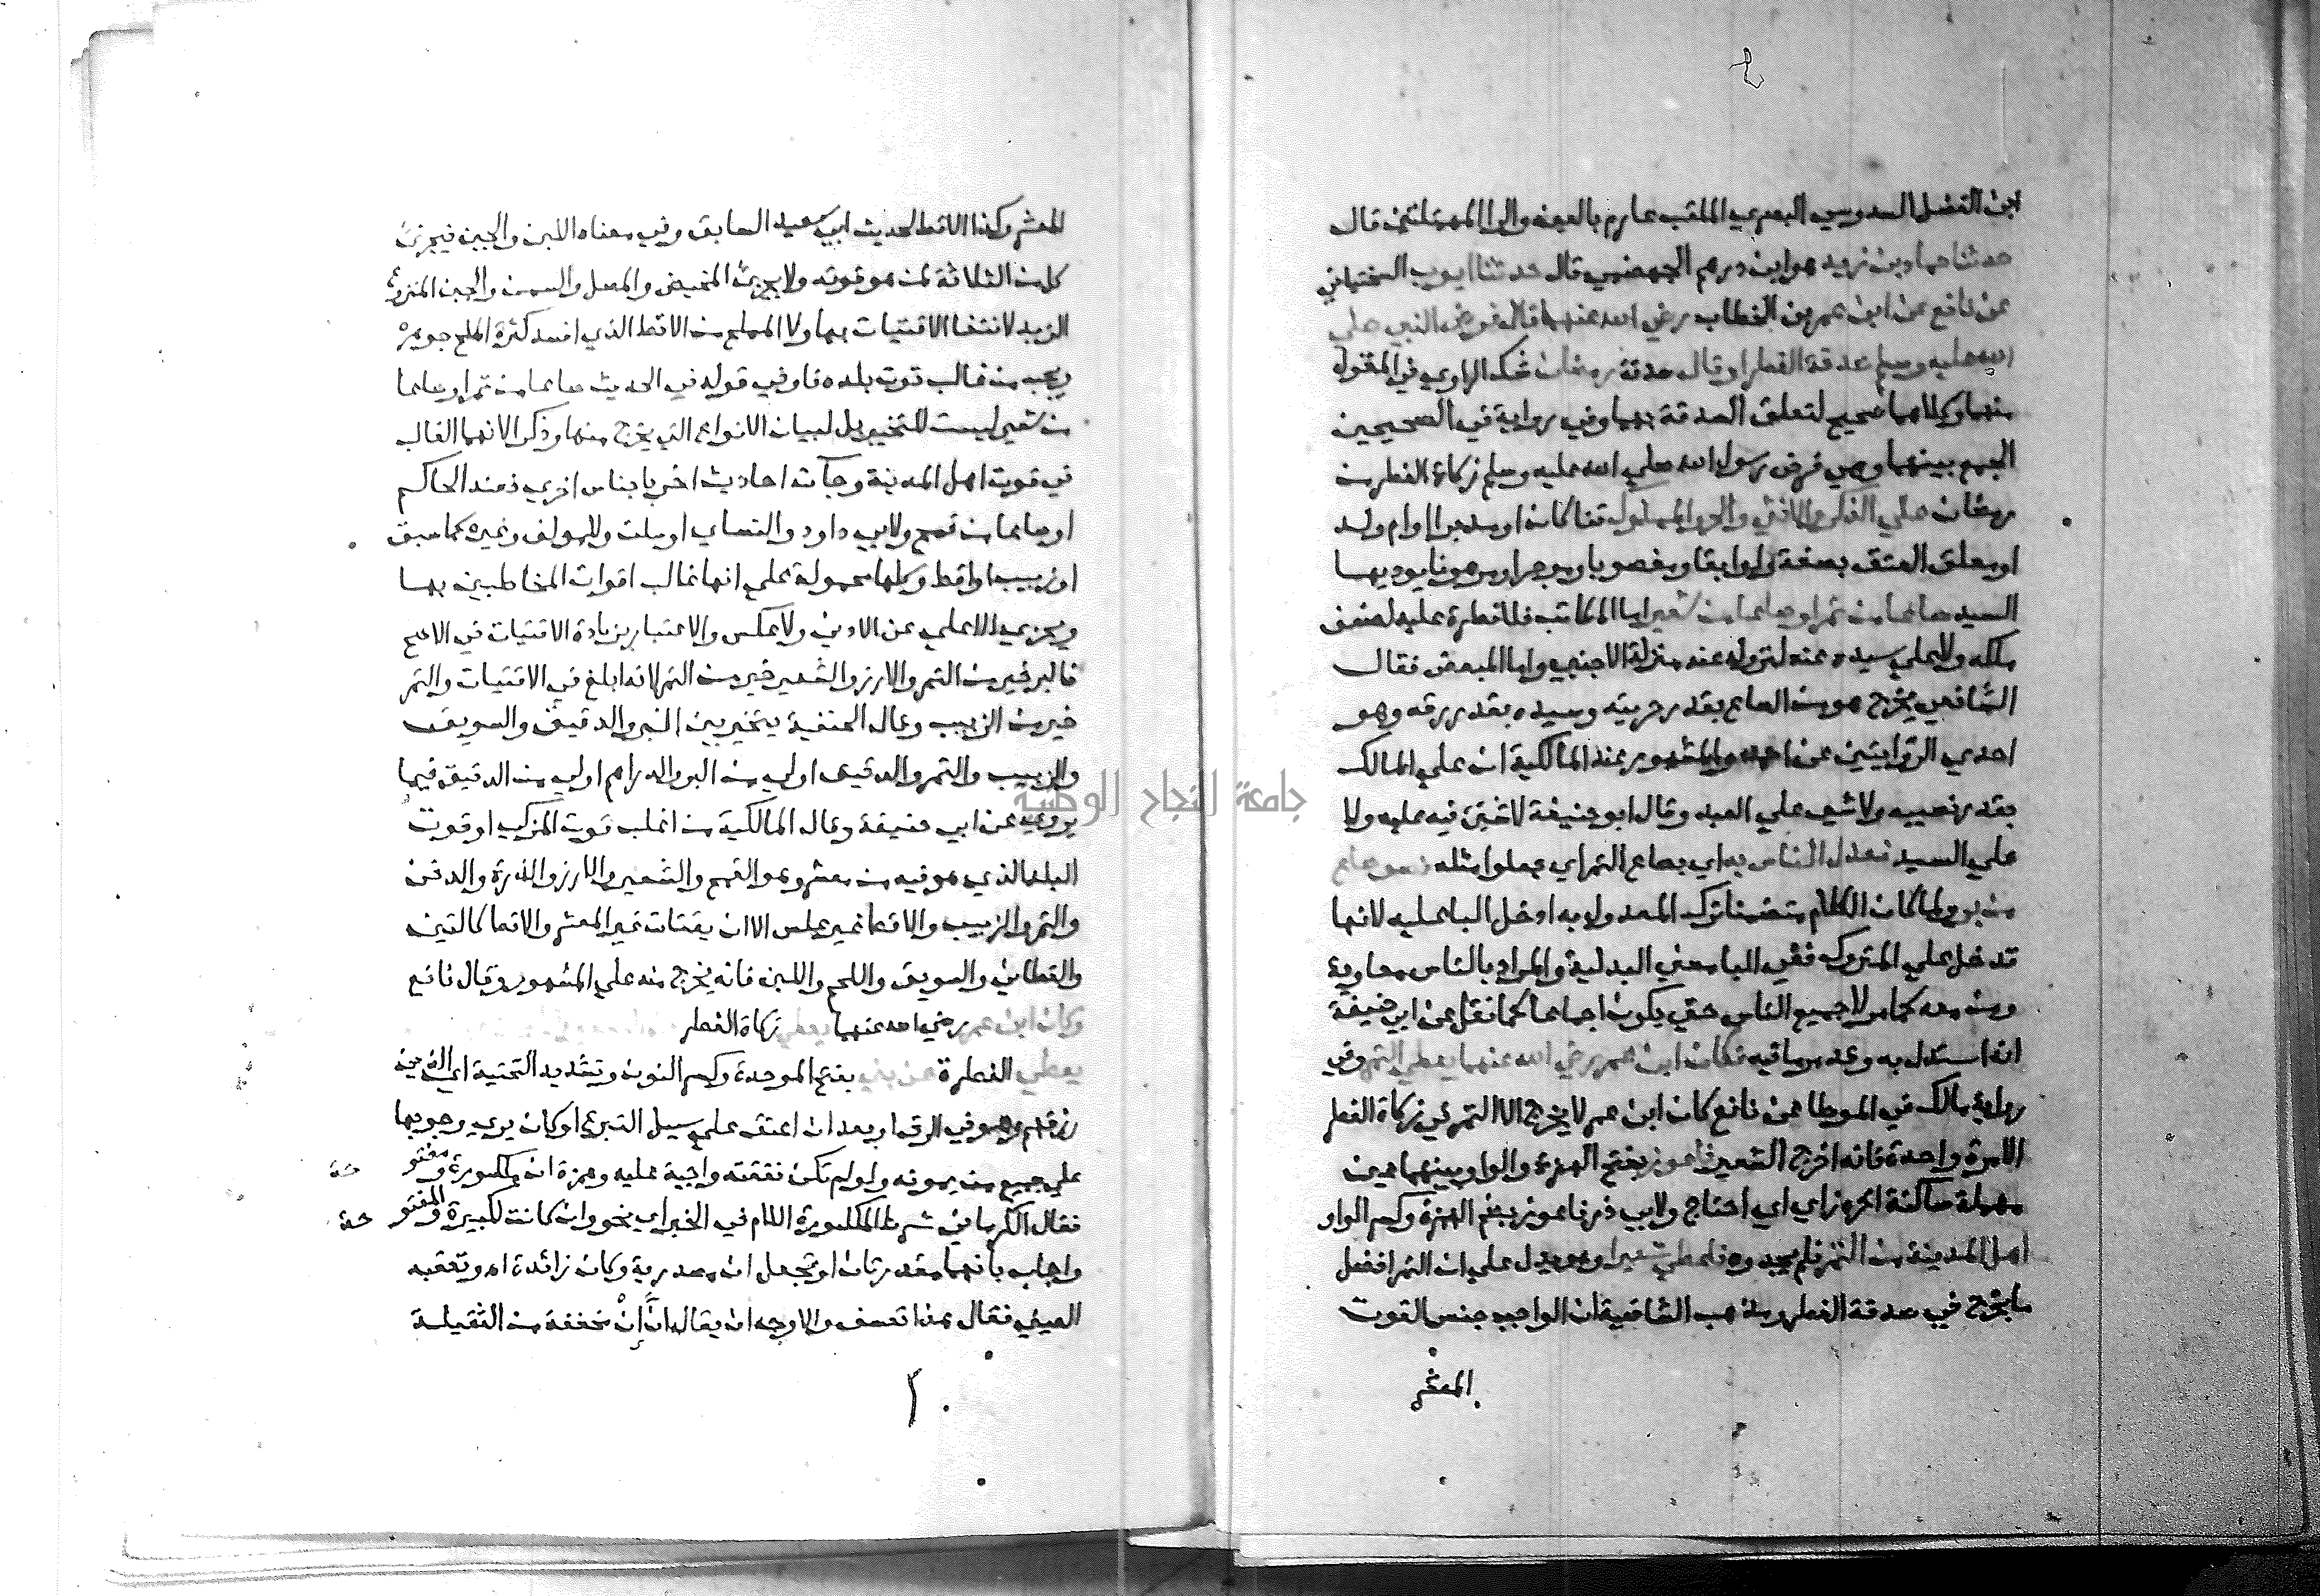 ابن الفضل السدوسي البصري الملقب عارم بالعين والرا المهملتين قال
حدثنا حماد بن زيد هو ابن درهم الجهضمي قال حدثنا ايوب السختياني
عن نافع عن ابن عمر بن الخطاب رضي الله عنهما قال فرض النبي صلي
الله عليه وسلم صدقة الفطر او قال صدقة رمضان شك الراوي في المقول
منهما وكلاهما صحيح لتعلق الصدقة بهما وفي رواية في الصحيحين
الجمع بينهما وهي فرض رسول الله صلي الله عليه وسلم زكاة الفطر من
رمضان علي الذكر والانثي والحر والمملوك قنا كان او مدبرا او ام ولد
او معلق العتق بصفة ولو ابقا او مغصوبا او موجرا او مرهونا يوديها
السيد صاعا من تمر او صاعا من شعير اما المكاتب فلا فطرة عليه لضعف
ملكه ولا علي سيده عنه لنزوله عنه منزلة الاجنبي واما المبعض فقال
الشافعي يخرج هو من الصاع بقدر حريته وسيده بقدر رقه وهو
احدي الروايتين عن احمد والمشهور عند المالكية ان علي المالك
بقدر نصيبه ولا شي علي العبد وقال ابو حنيفة لا شي فيه عليه ولا
علي السيد فعدل الناس به اي بصاع التمر اي جعلوا مثله نصف صاع
من بر ولما كان الكلام متضمنا ترك المعدول به ادخل البا عليه لانها
تدخل علي المتروك ففي البا معني البدلية والمراد بالناس معاوية
ومن معه كما مر لا جميع الناس حتي يكون اجماعا كما نقل عن ابي حنيفة
انه استدل به وقد مر ما فيه فكان ابن عمر رضي الله عنهما يعطي التمر وفي
رواية مالك في الموطا عن نافع كان ابن عمر لا يخرج الا التمر في زكاة الفطر
الا مرة واحدة فانه اخرج الشعير فاعوز بفتح الهمزة والواو بينهما عين
مهملة ساكنة اخره زاي اي احتاج ولابي ذر فاعوز بضم الهمزة وكسر الواو
اهل المدينة من التمر فلم يجدوه فاعطي شعيرا وهو يدل علي ان التمر افضل
ما يخرج في صدقة الفطر ومذهب الشافعية ان الواجب جنس القوت
المعشر
المعشر وكذا الاقط لحديث ابي سعيد السابق وفي معناه اللبن والجبن فيجزئ
كل من الثلاثة لمن هو قوته ولا يجزئ المخيض والمصل والسمن والجبن المنزوع
الزبد لانتفا الاقتيات بها ولا المملح من الاقط الذي افسد كثرة الملح جوهره
ويجب من غالب قوت بلده فاو في قوله في الحديث صاعا من تمر او صاعا
من شعير ليست للتخيير بل لبيان الانواع التي يخرج منها وذكرا لانهما الغالب
في قوت اهل المدينة وجآت احاديث اخر باجناس اخري فعند الحاكم
او صاعا من قمح ولابي داود والنساي او سلت وللمولف وغيره كما سبق
او زبيب او اقط وكلها محمولة علي انها غالب اقوات المخاطبين بها
ويجزي الاعلي عن الادني ولا عكس والاعتبار بزيادة الاقتيات في الاصح
فالبر خير من التمر والارز والشعير خير من التمر لانه ابلغ في الاقتيات والتمر
خير من الزبيب وقال الحنفية يتخير بين البر والدقيق والسويق
والزبيب والتمر والدقيق اولي من البر والدراهم اولي من الدقيق فيما
يروي عن ابي حنيفة وقال المالكية من اغلب قوت المزكي او قوت
البلد الذي هو فيه من معشر وهو القمح والشعير والارز والذرة والدخن
والتمر والزبيب والاقط غير علس الا ان يقتات غير المعشر والاقط كالتين
والقطاني والسويق واللحم واللبن فانه يخرج منه علي المشهور وقال نافع
وكان ابن عمر رضي الله عنهما يعطي زكاة الفطر
يعطي الفطرة عن بني بفتح الموحدة وكسر النون وتشديد التحتية اي الذين
رزقهم وهو في الرق او بعد ان اعتق علي سبيل التبرع او كان يري وجوبها
علي جميع من يمونه ولو لم تكن نفقته واجبة عليه وهمزة ان مكسورة ومفتو حة
فقال الكرماني شرط المكسورة اللام في الخبر اي نحو وان كانت لكبيرة والمفتو حة
واجاب بانهما مقدرتان او تجعل ان مصدرية وكان زائدة اه وتعقبه
العيني فقال هذا تعسف والاوجه ان يقال ان إنْ مخففة من الثقيلة
جامعة النجاح الوطنية